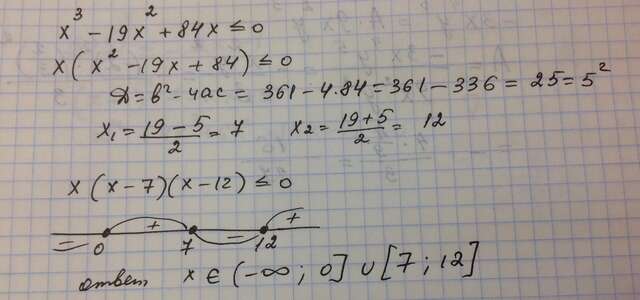 x³ - 19x² + 84x ≤ 0
x(x² - 19x + 84) ≤ 0
Д = b² - 4ac = 361 - 4·84 = 361 - 336 = 25 = 5²
x₁ = (19 - 5)/2 = 7   x₂ = (19 + 5)/2 = 12
x(x - 7)(x - 12) ≤ 0
- + - +
0 7 12
ответ x ∈ (-∞; 0] ∪ [7; 12]